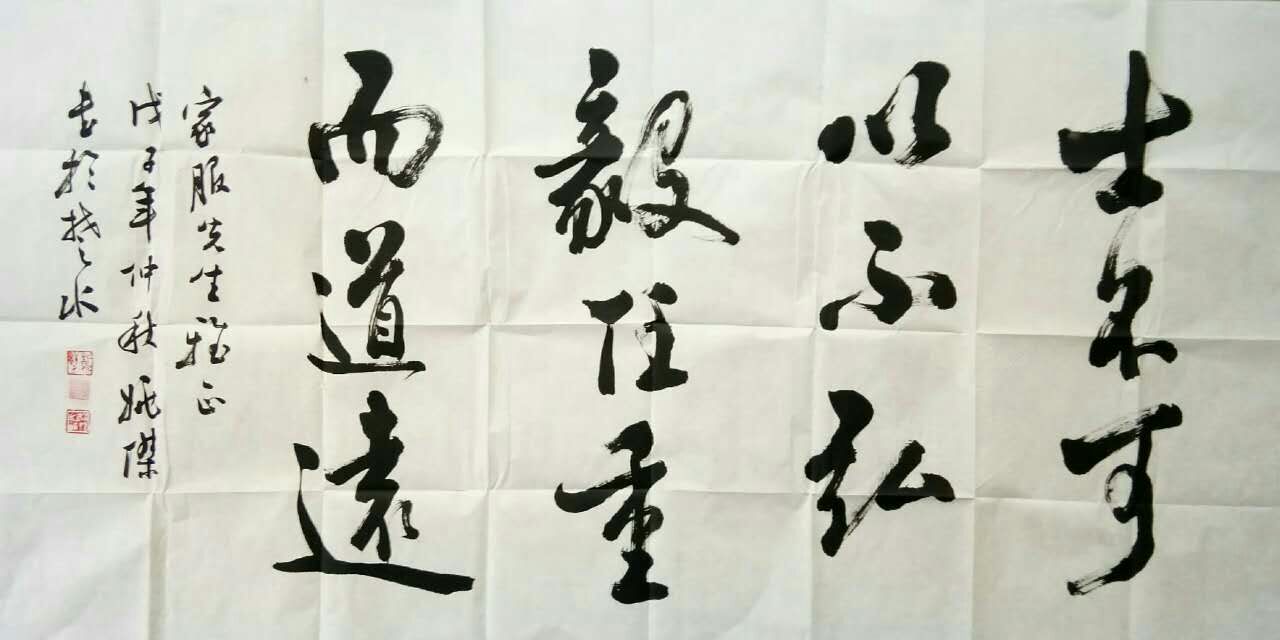 士不可
以不弘
毅任重
而道遠
家服先生雅正
戊子年仲秋姚傑
書於楚水